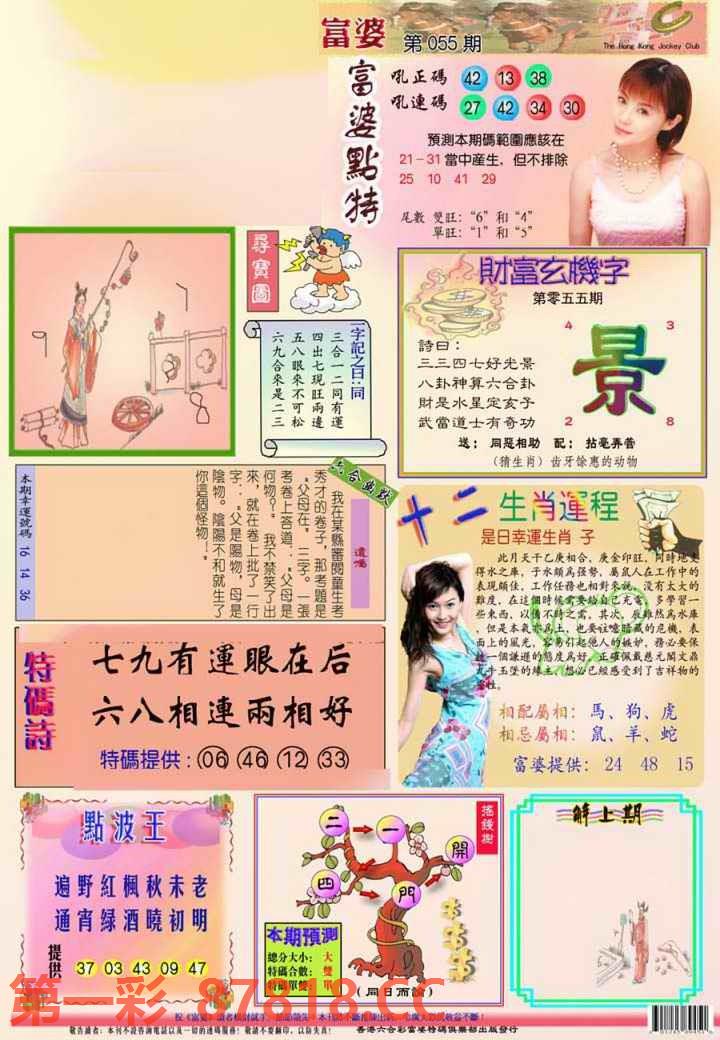 富婆 第055期
The Hong Kong Jockey Club
富婆點特
吼正碼 42 13 38
吼連碼 27 42 34 30
預測本期碼範圍應該在
21－31當中產生．但不排除
25 10 41 29
尾數 雙旺：“6”和“4”
單旺：“1”和“5”
尋寶圖
一字記之曰：同
三合一二同有運
四出七現旺兩邊
五八眼來不可松
六九合來是二三
財富玄機字
第零五五期
詩曰：
三三四七好光景
八卦神算六合卦
財是水星定玄子
武當道士有奇功
4 3
景
2 8
送： 同惡相助 配： 拈毫弄管
（猜生肖）齿牙馀惠的动物
六合幽默
遺囑
我在某縣審閱童生考
秀才的卷子，那考題是
“父母在”三字。一張
考卷上答道：“父母是
何物？”我不禁笑了出
來，就在卷上批了一行
字：“父是陽物，母是
陰物。陰陽不和就生了
你這個怪物！”
本期幸運號碼 16 14 36
十二生肖運程
是日幸運生肖 子
此月天干乙庚相合，庚金印旺，同時地支
得水之庫，于水頗爲强勢，屬鼠人在工作中的
表現頗佳，工作任務也相對來說，没有太大的
難度，在這個時候需要給自己充電，多學習一
些東西，以備不時之需，其次，辰雖然爲水庫
，但是本氣亦爲土，也要注意暗藏的危機，表
面上的風光，容易引起他人的嫉妒，務必要保
持一個謙遜的態度爲好，正確佩戴慈元閣文鼎
相配屬相：馬、狗、虎
相忌屬相：鼠、羊、蛇
富婆提供：24 48 15
特碼詩
七九有運眼在后
六八相連兩相好
特碼提供：06 46 12 33
點波王
遍野紅楓秋未老
通宵绿酒曉初明
提供 37 03 43 09 47
搖錢樹
二 一 開
四 門
本期預測
總分大小： 大
特碼合數： 雙
特碼單雙： 單
（同日而論）
解上期
第一彩 87818.CC
敬告讀者：本刊不設咨詢電話以及一切的透碼服務！敬請不要翻印，以防失真！
香港六合彩富婆特碼俱樂部出版發行